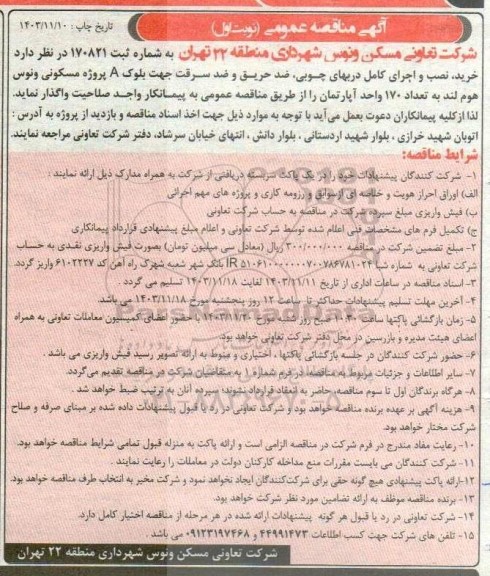 تاریخ چاپ : ۱۴۰۳/۱۱/۱۰
آگهی مناقصه عمومی (نوبت اول)
شرکت تعاونی مسکن ونوس شهرداری منطقه ۲۲ تهران به شماره ثبت ۱۷۰۸۲۱ در نظر دارد
خرید، نصب و اجرای کامل دربهای چوبی، ضد حریق و ضد سرقت جهت بلوک A پروژه مسکونی ونوس
هوم لند به تعداد ۱۷۰ واحد آپارتمان را از طریق مناقصه عمومی به پیمانکار واجد صلاحیت واگذار نماید.
لذا ازکلیه پیمانکاران دعوت بعمل می‌آید با توجه به موارد ذیل جهت اخذ اسناد مناقصه و بازدید از پروژه به آدرس :
اتوبان شهید خرازی ، بلوار شهید اردستانی ، بلوار دانش ، انتهای خیابان سرشاد، دفتر شرکت تعاونی مراجعه نمایند.
شرایط مناقصه:
۱- شرکت کنندگان پیشنهادات خود را در یک پاکت سربسته دریافتی از شرکت به همراه مدارک ذیل ارائه نمایند :
الف) اوراق احراز هویت و خلاصه ای از سوابق و رزومه کاری و پروژه های مهم اجرائی
ب) فیش واریزی مبلغ سپرده شرکت در مناقصه به حساب شرکت تعاونی
ج) تکمیل فرم های مشخصات فنی اعلام شده توسط شرکت تعاونی و اعلام مبلغ پیشنهادی قرارداد پیمانکاری
۲- مبلغ تضمین شرکت در مناقصه ۳۰۰/۰۰۰/۰۰۰ ریال (معادل سی میلیون تومان) بصورت فیش واریزی نقدی به حساب
شرکت تعاونی به شماره شبا IR بانک شهر شعبه شهرک راه آهن کد ۶۱۰۲۲۳۷ واریز گردد.
۳- اسناد مناقصه در ساعات اداری از تاریخ ۱۴۰۳/۱۱/۱۱ لغایت ۱۴۰۳/۱۱/۱۸ تسلیم می گردد .
۴- آخرین مهلت تسلیم پیشنهادات حداکثر تا ساعت ۱۲ روز پنجشنبه مورخ ۱۴۰۳/۱۱/۱۸ می باشد
۵- زمان بازگشائی پاکتها ساعت صبح روز شنبه مورخ ۱۴۰۳/۱۱/۲۰ با حضور اعضای کمیسیون معاملات تعاونی به همراه
اعضای هیئت مدیره و بازرسین در محل دفتر شرکت تعاونی خواهد بود.
۶- حضور شرکت کنندگان در جلسه بازگشائی پاکتها ، اختیاری و منوط به ارائه تصویر رسید فیش واریزی می باشد .
۷- سایر اطلاعات و جزئیات مربوط به مناقصه در فرم شماره ۱ به متقاضیان شرکت در مناقصه تقدیم می‌گردد.
۸- هرگاه برندگان اول تا سوم مناقصه، حاضر به انعقاد قرارداد نشوند؛ سپرده آنان به ترتیب ضبط خواهد شد .
۹- هزینه آگهی بر عهده برنده مناقصه خواهد بود و شرکت تعاونی در رد یا قبول پیشنهادات داده شده بر مبنای صرفه و صلاح
شرکت مختار خواهد بود.
۱۰- رعایت مفاد مندرج در فرم شرکت در مناقصه الزامی است و ارائه پاکت به منزله قبول تمامی شرایط مناقصه خواهد بود.
۱۱- شرکت کنندگان می بایست مقررات منع مداخله کارکنان دولت در معاملات را رعایت نمایند .
۱۲-ارائه پاکت پیشنهادی هیچ گونه حقی برای شرکت‌کنندگان ایجاد نخواهد نمود و شرکت مخیر به انتخاب طرف مناقصه خواهد بود.
۱۳- برنده مناقصه موظف به ارائه تضامین مورد نظر شرکت خواهد بود.
۱۴- شرکت تعاونی در رد یا قبول هر گونه پیشنهادات ارائه شده در هر مرحله از مناقصه اختیار کامل دارد.
۱۵- تلفن های شرکت جهت کسب اطلاعات ۴۴۹۹۱۴۷۳ و ۰۹۱۲۳۱۹۷۴۶۸ می باشد .
شرکت تعاونی مسکن ونوس شهرداری منطقه ۲۲ تهران